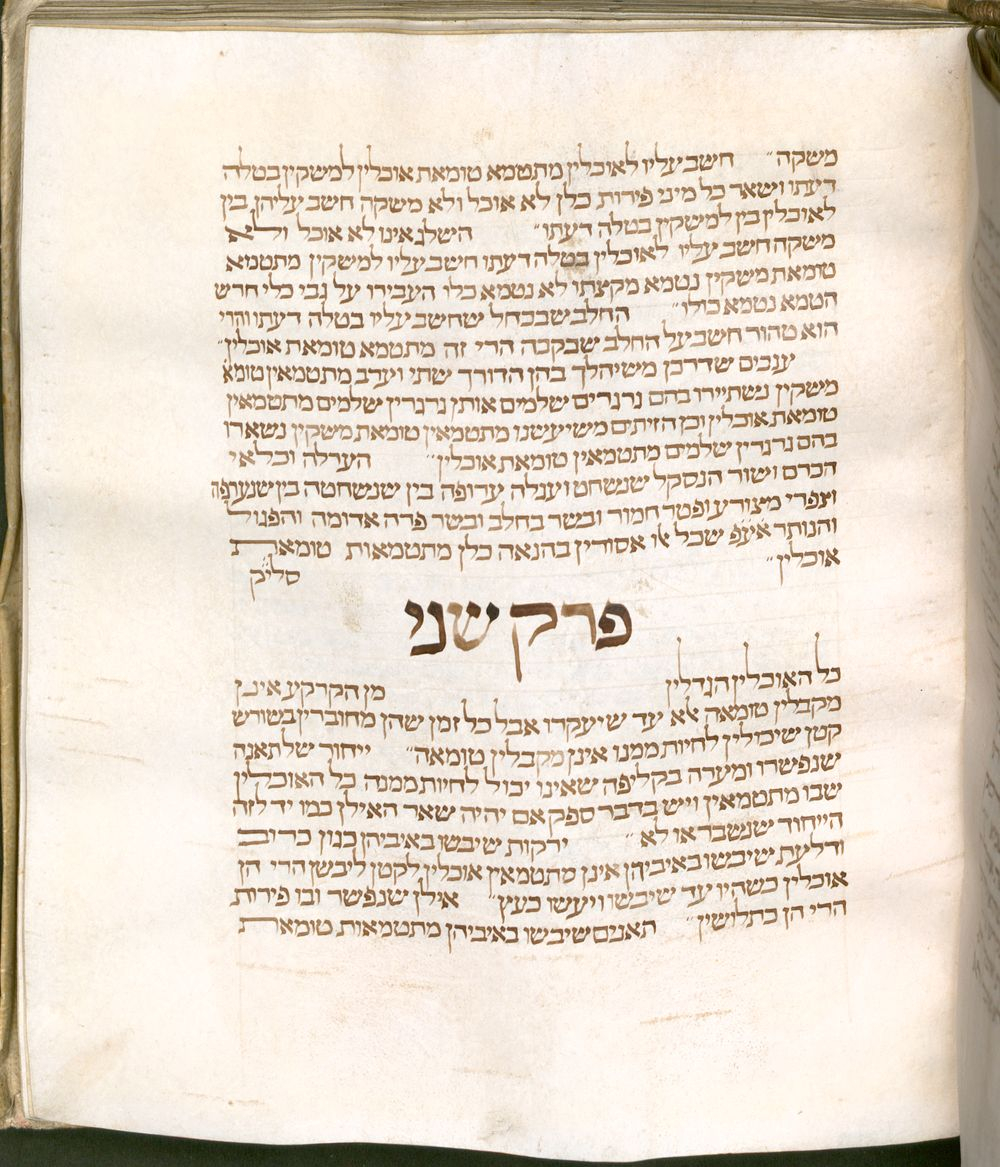 משקה״ חשב עליו לאוכלין מתטמא טומאת אוכלין למשקין בטלה
דעתו ושאר כל מיני פירות כלן לא אוכל ולא משקה חשב עליהן בין
לאוכלין בין למשקין בטלה דעתו״ השלג אינו לא אוכל ולא
משקה חשב עליו לאוכלין בטלה דעתו חשב עליו למשקין מתטמא
טומאת משקין נטמא מקצתו לא נטמא כלו העבירו על גבי כלי חרש
הטמא נטמא כולו״ החלב שבכחל שחשב עליו בטלה דעתו והרי
הוא טהור חשב על החלב שבקבה הרי זה מתטמא טומאת אוכלין״
ענבים שדרכן משיהלך בהן הדורך שתי וערב מתטמאין טומא
משקין נשתיירו בהם גרגרים שלמים אותן גרגרין שלמים מתטמאין
טומאת אוכלין וכן הזיתים משיעשנו מתטמאין טומאת משקין נשארו
בהם גרגרין שלמים מתטמאין טומאת אוכלין״ הערלה וכלאי
הכרם ושור הנסקל שנשחט ועגלה ערופה בין שנשחטה בין שנערפה
וצפרי מצורע ופטר חמור ובשר בחלב ובשר פרה אדומה והפגול
והנותר אעפ שכל אלו אסורין בהנאה כלן מתטמאות טומאת
אוכלין״
סליק
פרק שני
כל האוכלין הגדלין מן הקרקע אינן
מקבלין טומאה אלא עד שיעקרו אבל כל זמן שהן מחוברין בשורש
קטן שיכולין לחיות ממנו אינן מקבלין טומאה״ ייחור של תאנה
שנפשרו ומערה בקליפה שאינו יכול לחיות ממנה כל האוכלין
שבו מתטמאין ויש בדבר ספק אם יהיה שאר האילן כמו יד לזה
הייחור שנשבר או לא״ ירקות שיבשו באיביהן כגון כרוב
ודלעת שיבשו באיביהן אינן מתטמאין אוכלין לקטן ליבשן הרי הן
אוכלין כשהיו עד שיבשו ויעשו כעץ״ אילן שנפשר ובו פירות
הרי הן כתלושין״ תאנים שיבשו באיביהן מתטמאות טומאת